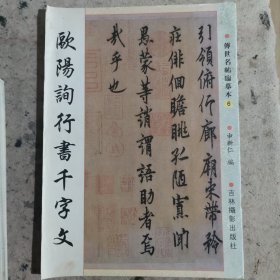 傳世名帖臨摹本 6
編
吉林攝影出版社
引領俯仰廊廟束帶矜
莊徘徊瞻眺孤陋寡聞
愚蒙等誚謂語助者焉
哉乎也
歐陽詢行書千字文